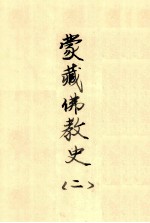 蒙藏佛教史
(二)